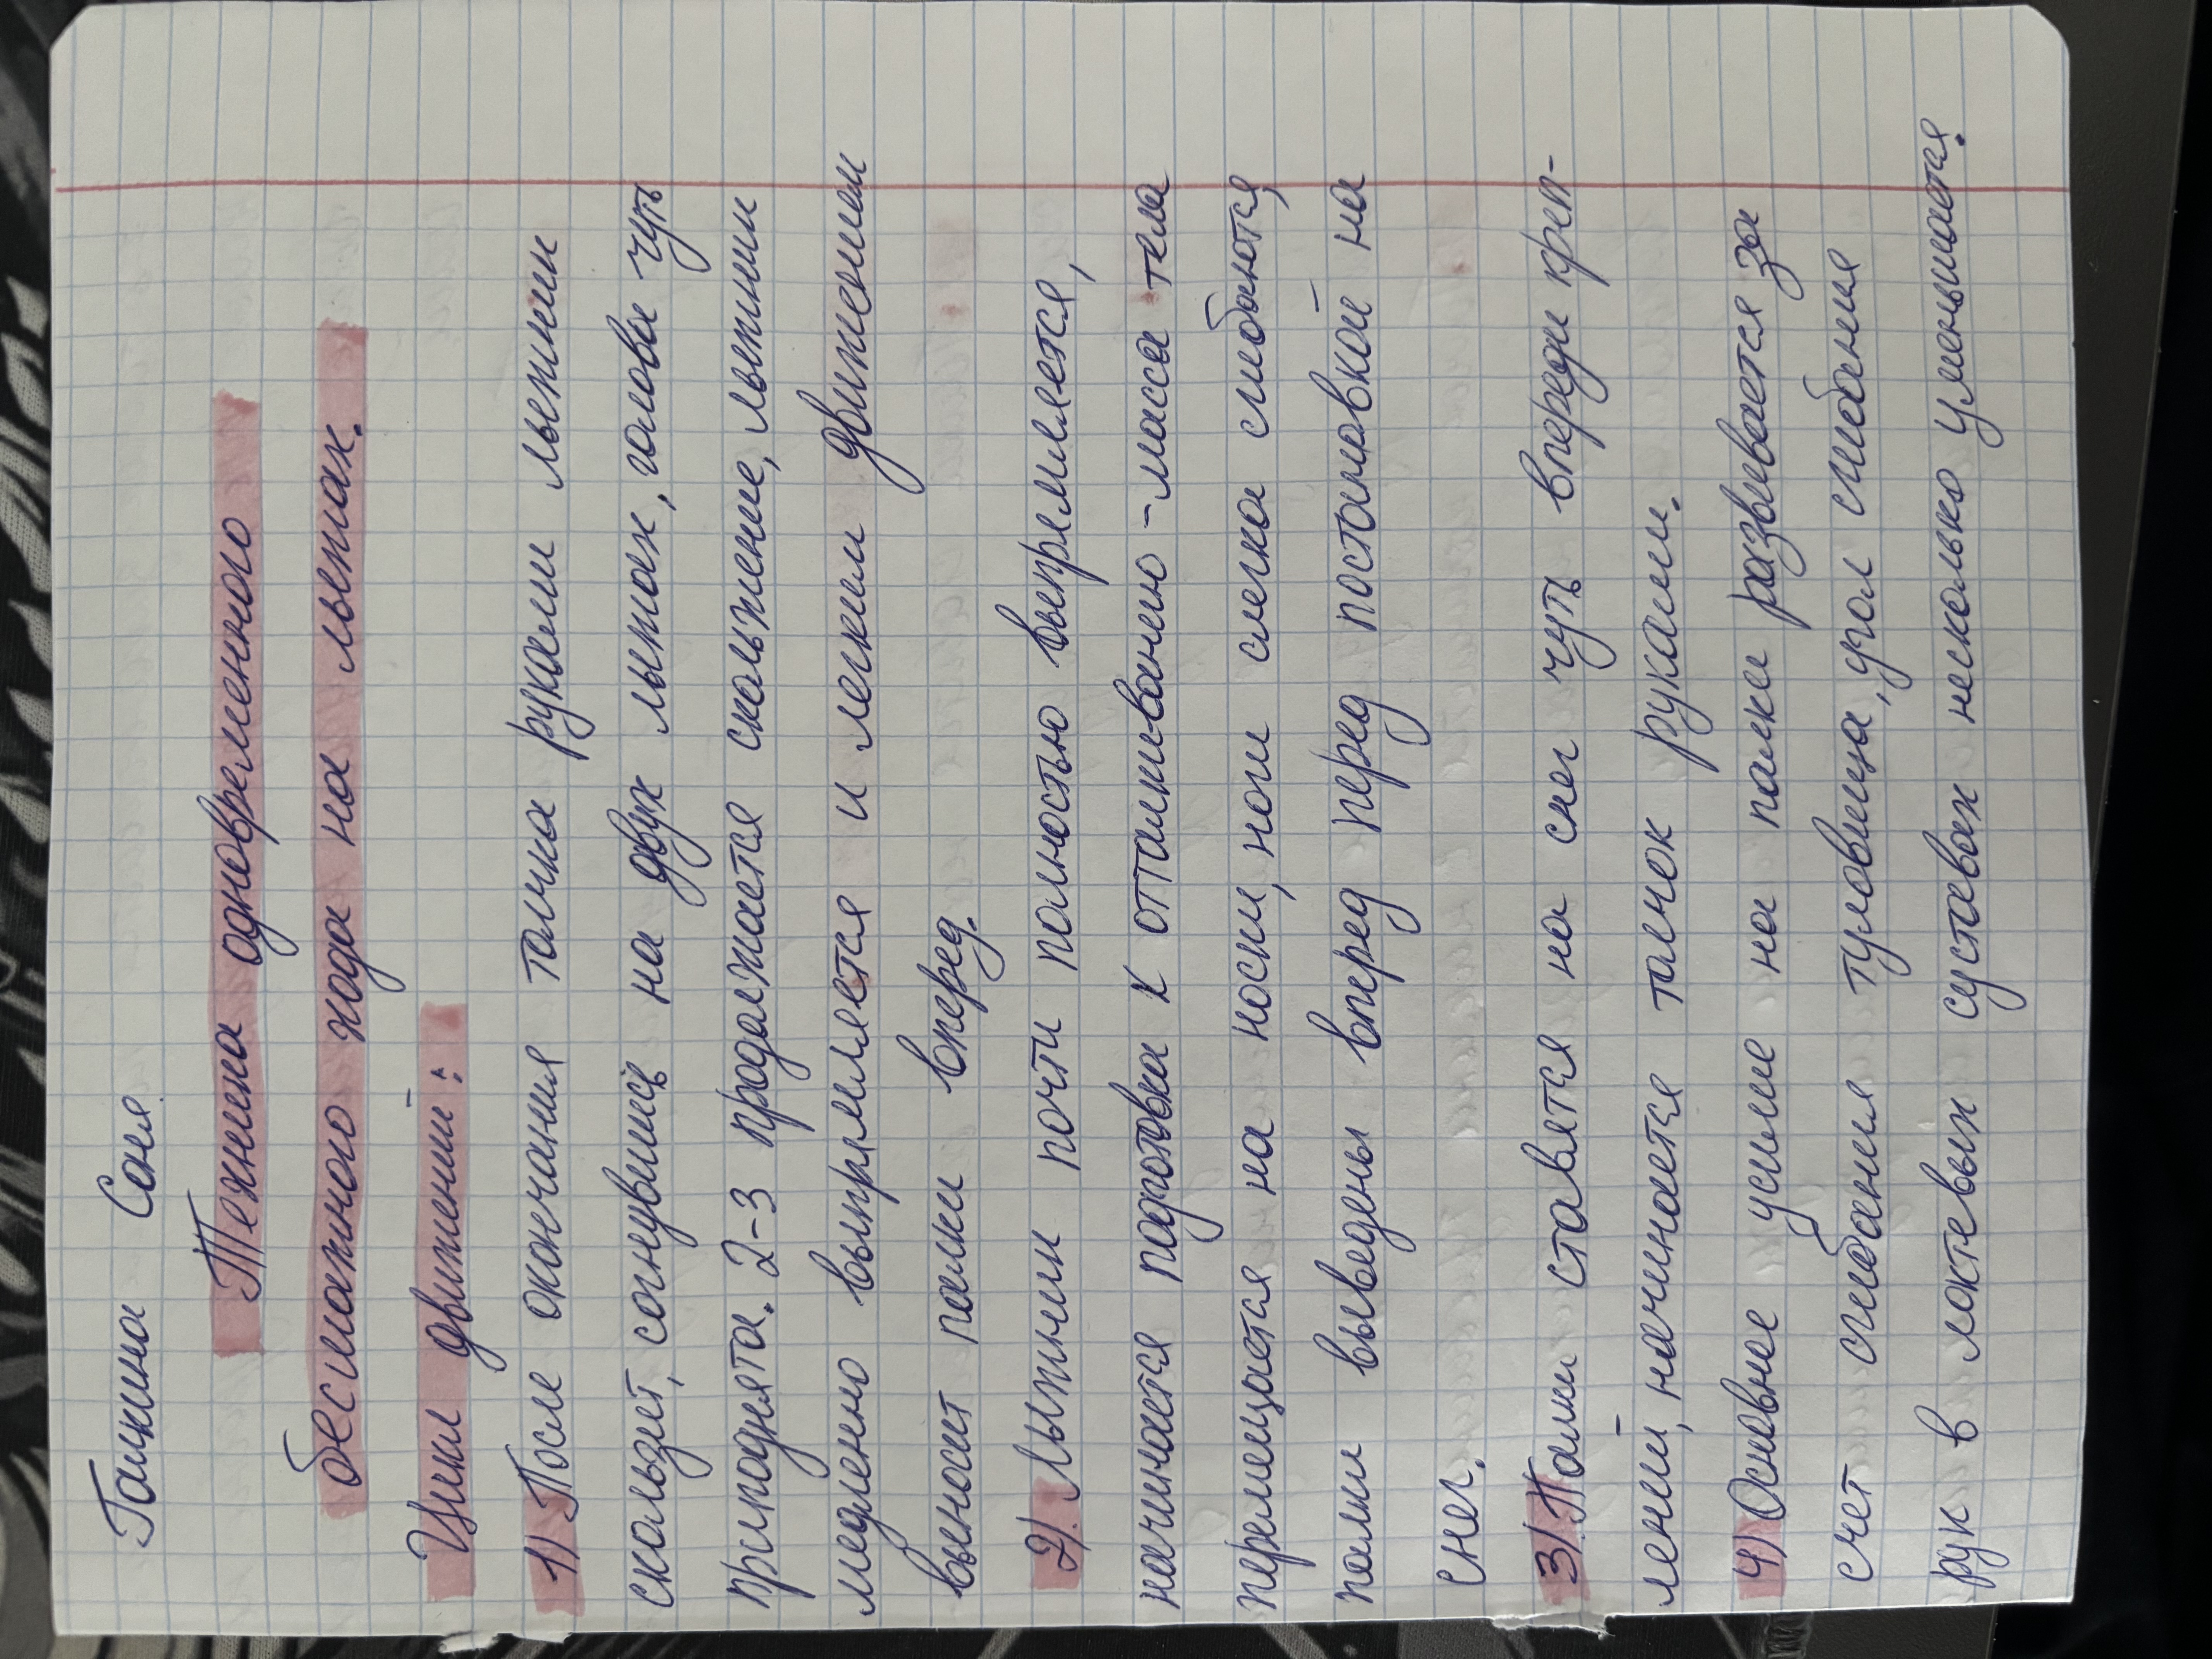 Галкина Соня.
Техника одновременного
бесшажного хода на лыжах.
Цикл движений:
1) После окончания толчка руками лыжник
скользит, согнувшись на двух лыжах, голова чуть
приподнята. 2-3 продолжается скольжение, лыжник
медленно выпрямляется и легким движением
выносит палки вперед.
2). Лыжник почти полностью выпрямляется,
начинается подготовка к отталкиванию - масса тела
перемещается на носки, ноги слегка сгибаются,
палки выведены вперед перед постановкой на
снег.
3). Палки ставятся на снег чуть впереди креп-
лений, начинается толчок руками.
4) Основное усилие на палки развивается за
счет сгибания туловища, угол сгибания
рук в локтевых суставах несколько уменьшается.